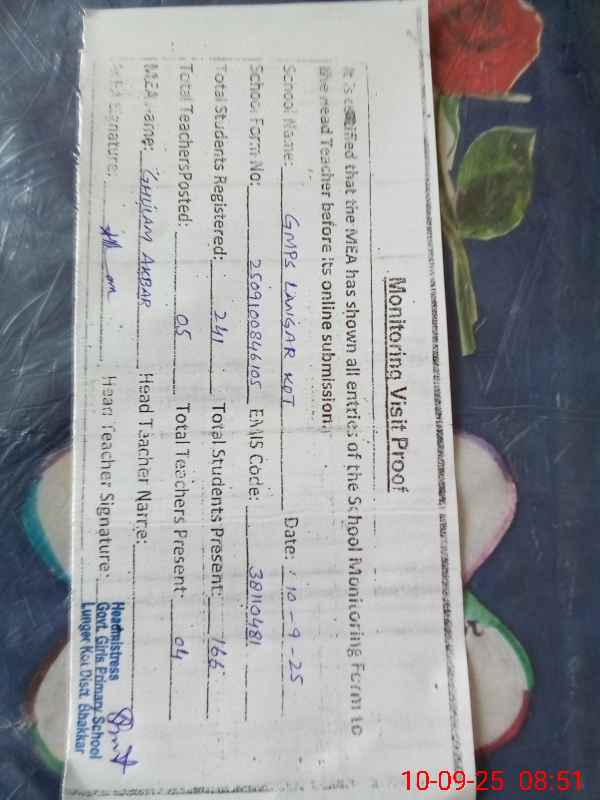 Monitoring Visit Proof
It is certified that the MEA has shown all entries of the School Monitoring Form to
the Head Teacher before its online submission.
School Name: GMPS LUNGAR KOT Date: 10-9-25
School Form No: 2509100846105 EMIS Code: 38110481
Total Students Registered: 241 Total Students Present: 166
Total Teachers Posted: 05 Total Teachers Present: 04
MEA Name: GHULAM AKBAR Head Teacher Name:
MEA Signature: Head Teacher Signature:
Headmistress
Govt. Girls Primary School
Lunger Kot Distt. Bhakkar
10-09-25 08:51